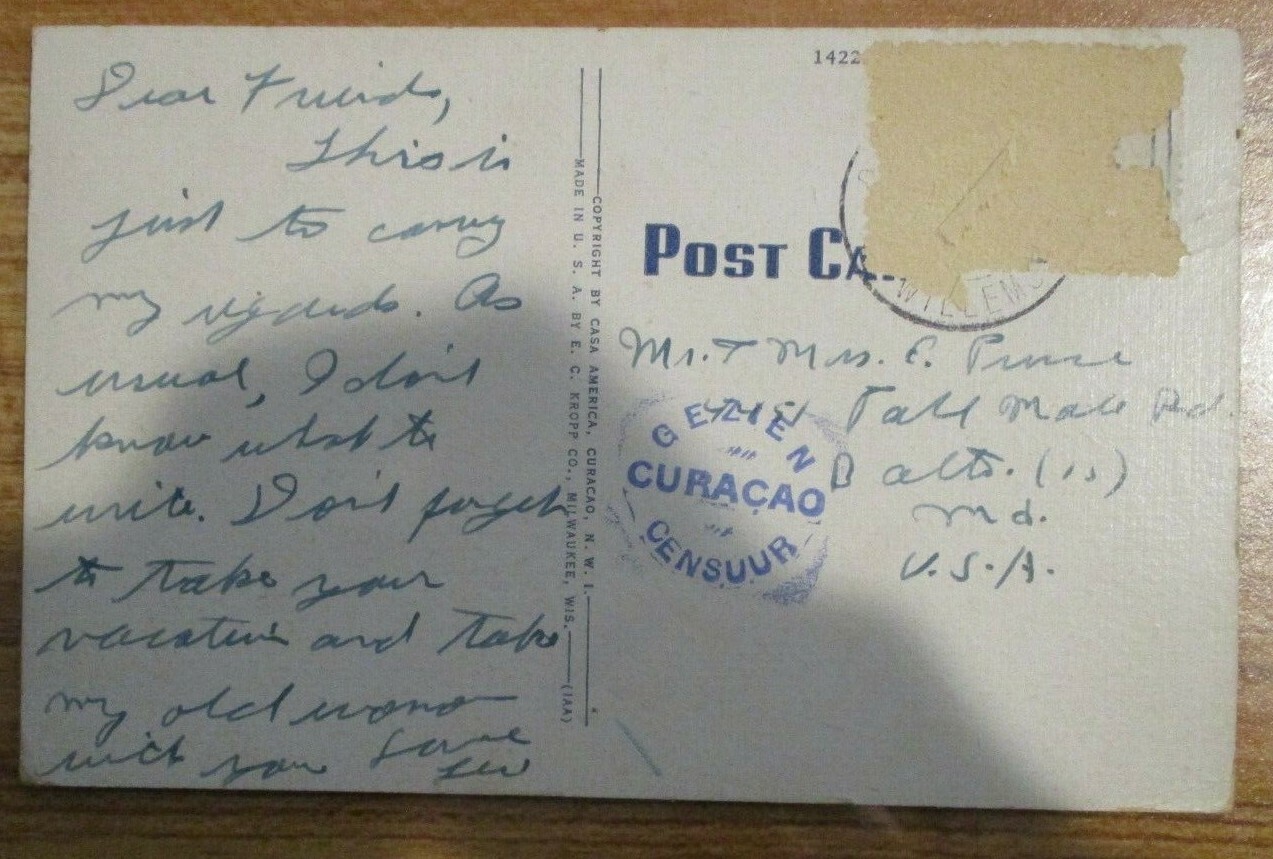 Dear Friends,
This is
just to convey
my regards. As
usual, I don't
know what to
write. Don't forget
to take your
vacation and take
my old woman
with you Love
COPYRIGHT BY CASA AMERICA, CURACAO, N. W. I.
MADE IN U. S. A. BY E. C. KROPP CO., MILWAUKEE, WIS.
(1AA)
1422
POST CA
WILLEMS
Mr. + Mrs. E.
Mall Rd.
Balto. (15)
Md.
U.S.A.
GEZIEN
CURAÇAO
CENSUUR